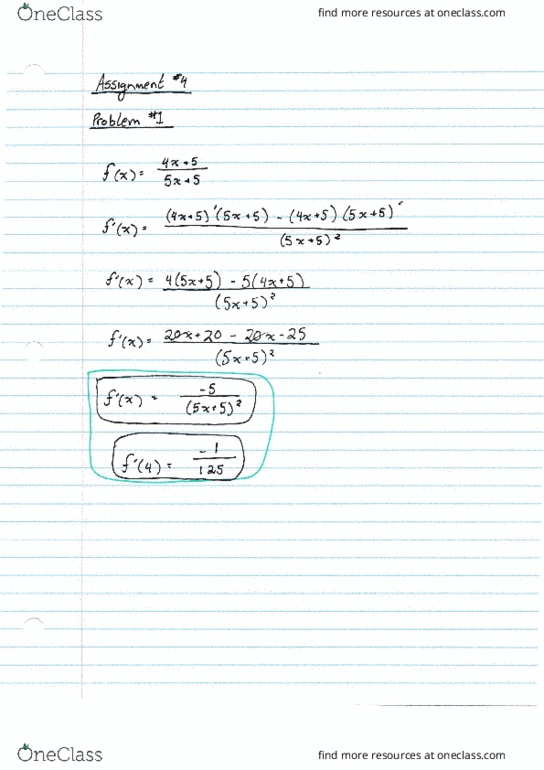 OneClass find more resources at oneclass.com
Assignment #4
Problem #1
f(x) = 4x+5 / 5x+5
f'(x) = (4x+5)'(5x+5) - (4x+5)(5x+5)' / (5x+5)²
f'(x) = 4(5x+5) - 5(4x+5) / (5x+5)²
f'(x) = 20x+20 - 20x-25 / (5x+5)²
f'(x) = -5 / (5x+5)²
f'(4) = -1 / 125
OneClass find more resources at oneclass.com